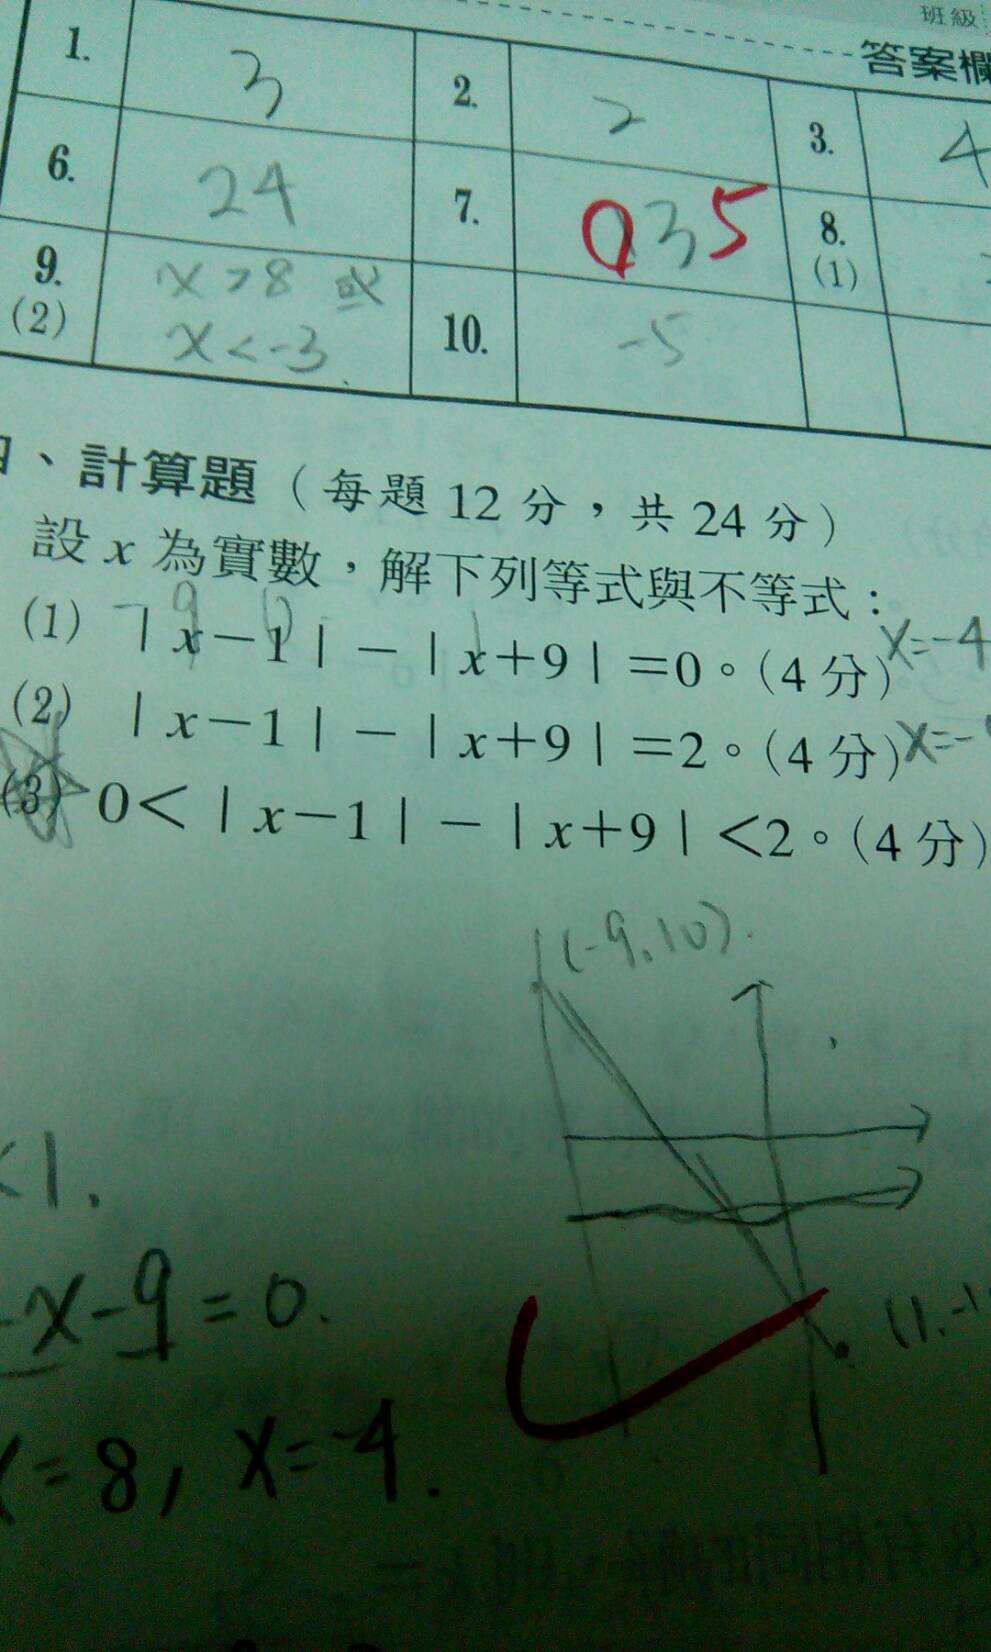 班級
答案欄
1. 3 2. 2 3. 4
6. 24 7. 35 8.
(1)
9. x>8 或
(2) x<-3 10. -5
、計算題(每題 12 分,共 24 分)
設 x 為實數,解下列等式與不等式:
(1) |x-1|-|x+9|=0。(4 分) x=-4
(2) |x-1|-|x+9|=2。(4 分) x=-
(3) 0<|x-1|-|x+9|<2。(4 分)
(-9,10).
<1.
-x-9=0.
(1,-1
x=8, x=-4.